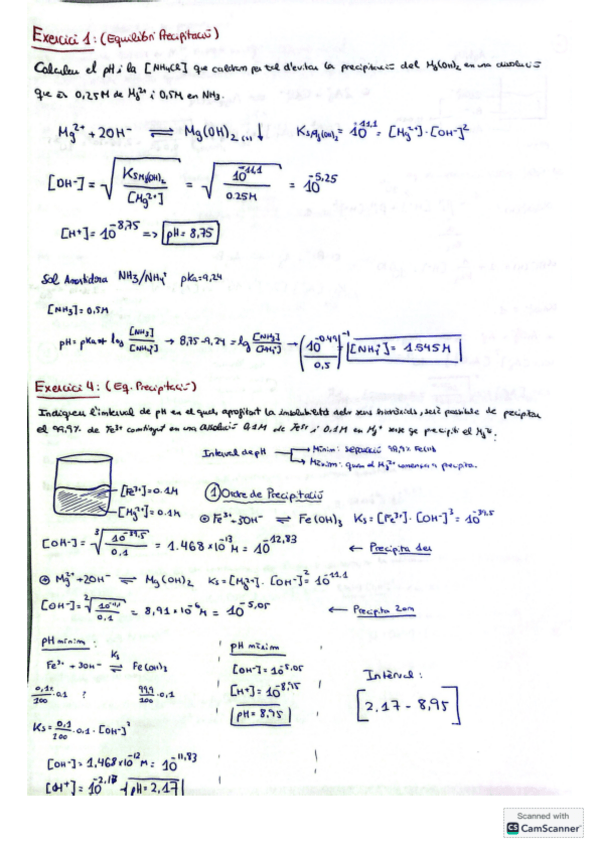 Exercici 1: (Equilibri Precipitació)
Calculeu el pH i la [NH4Cl] que caldran per tal d'evitar la precipitació del Mg(OH)2 en una dissolució
que és 0,25M de Mg2+ i 0,5M en NH3.
Mg2+ + 2OH- ⇌ Mg(OH)2 ↓ KsMg(OH)2 = 10^-11,1 = [Mg2+]·[OH-]^2
[OH-] = √(KsMg(OH)2 / [Mg2+]) = √(10^-11,1 / 0.25M) = 10^-5,25
[H+] = 10^-8,75 => pH = 8,75
Sol Amortidora NH3/NH4+ pKa=9,24
[NH3]=0,5M
pH = pKa + log [NH3]/[NH4+] → 8,75-9,24 = lg [NH3]/[NH4+] → (10^-0.49 / 0,5)^-1 [NH4+] = 1.545M
Exercici 4: (Eq. Precipitació)
Indiqueu l'interval de pH en el qual, aprofitant la insolubilitat dels seus hidròxids, serà possible de precipitar
el 99,9% de Fe3+ contingut en una dissolució 0,1M de Fe3+ i 0,1M en Mg2+ sense que precipiti el Mg2+.
Interval de pH → Mínim: separació 99,9% Fe(III)
→ Màxim: quan el Mg2+ comença a precipitar.
[Fe3+]=0.1M
[Mg2+]=0.1M
1 Ordre de Precipitació
Fe3+ + 3OH- ⇌ Fe(OH)3 Ks = [Fe3+]·[OH-]^3 = 10^-39,5
[OH-] = ∛(10^-39,5 / 0,1) = 1.468×10^-13 M = 10^-12,83 ← Precipita 1er
Mg2+ + 2OH- ⇌ Mg(OH)2 Ks = [Mg2+]·[OH-]^2 = 10^-11,1
[OH-] = ²√(10^-11,1 / 0.1) = 8,91×10^-6 M = 10^-5,05 ← Precipita 2on
pH mínim:
Ks
Fe3+ + 3OH- ⇌ Fe(OH)3
0,1/100 · 0.1 ? 99,9/100 · 0,1
Ks = 0,1/100 · 0.1 · [OH-]^3
[OH-] = 1,468×10^-12 M = 10^-11,83
[H+] = 10^-2,17 pH = 2,17
pH màxim
[OH-] = 10^-5,05
[H+] = 10^-8,95
pH = 8,95
Interval:
[2,17 - 8,95]
Scanned with
CS CamScanner